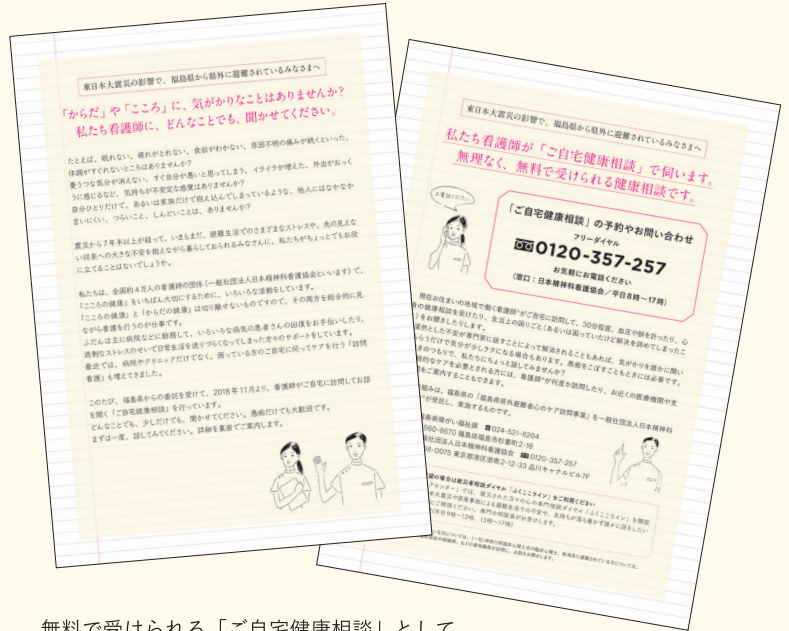 東日本大震災の影響で、福島県から県外に避難されているみなさまへ
「からだ」や「こころ」に、気がかりなことはありませんか?
私たち看護師に、どんなことでも、聞かせてください。
たとえば、眠れない、疲れがとれない、食欲がわかない、原因不明の痛みが続くといった、
体調がすぐれないところはありませんか?
憂うつな気分が消えない、すぐ自分が悪いと思ってしまう、イライラが増えた、外出がおっく
うに感じるなど、気持ちが不安定な感覚はありませんか?
自分ひとりだけで、あるいは家族だけで抱え込んでしまっているような、他人にはなかなか
言いにくい、つらいこと、しんどいことは、ありませんか?
震災から7年半以上が経って、いまもまだ、避難生活でのさまざまなストレスや、先の見えな
い将来への大きな不安を抱えながら暮らしておられるみなさんに、私たちがちょっとでもお役
に立てることはないでしょうか。
私たちは、全国約4万人の看護師の団体(一般社団法人日本精神科看護協会といいます)で、
「こころの健康」をいちばん大切にするために、いろいろな活動をしています。
「こころの健康」と「からだの健康」は切り離せないものですので、その両方を総合的に見
ながら看護を行うのが仕事です。
ふだんは主に病院などに勤務して、いろいろな病気の患者さんの回復をお手伝いしたり、
過剰なストレスのせいで日常生活を送りづらくなってしまった方々のサポートをしています。
最近では、病院やクリニックだけでなく、困っている方のご自宅に伺ってケアを行う「訪問
看護」も増えてきました。
このたび、福島県からの委託を受けて、2018年11月より、看護師がご自宅に訪問してお話
を聞く「ご自宅健康相談」を行っています。
どんなことでも、少しだけでも、聞かせてください。愚痴だけでも大歓迎です。
まずは一度、話してみてください。詳細を裏面でご案内します。
東日本大震災の影響で、福島県から県外に避難されているみなさまへ
私たち看護師が「ご自宅健康相談」で伺います。
無理なく、無料で受けられる健康相談です。
お電話ください
「ご自宅健康相談」の予約やお問い合わせ
フリーダイヤル
0120-357-257
お気軽にお電話ください
(窓口:日本精神科看護協会/平日8時〜17時)
現在お住まいの地域で働く看護師*がご自宅に訪問して、30分程度、血圧や脈を計ったり、心
身の健康相談を受けたり、生活上の困りごと(あるいは困っていたけど解決を諦めてしまったこ
)をお聞きしたりします。
漠然とした不安が専門家に話すことによって解消されることもあれば、気がかりを誰かに聞い
らうだけで気分が少しラクになる場合もあります。愚痴をこぼすこともときには必要です。
きのつもりで、私たちにちょっと話してみませんか?
続的なケアを必要とされる方には、看護師*が何度か訪問したり、お近くの医療機関や支
関をご案内することもできます。
組みは、福島県の「福島県県外避難者心のケア訪問事業」を一般社団法人日本精神科
が受託し、実施するものです。
福島県障がい福祉課 024-521-8204
960-8670 福島県福島市杉妻町2-16
般社団法人日本精神科看護協会 0120-357-257
08-0075 東京都港区港南2-12-33 品川キャナルビル7F
望の場合は被災者相談ダイヤル「ふくここライン」をご利用ください
アセンター」では、被災された方々の心の専門相談ダイヤル「ふくここライン」を開設
本大震災や原発事故による避難生活での不安や、気持ちが落ち着かず誰かに話をしたい
にご相談ください。専門の相談員がお受けします。
(平日9時〜12時、13時〜17時)
無料で受けられる「ご自宅健康相談」として